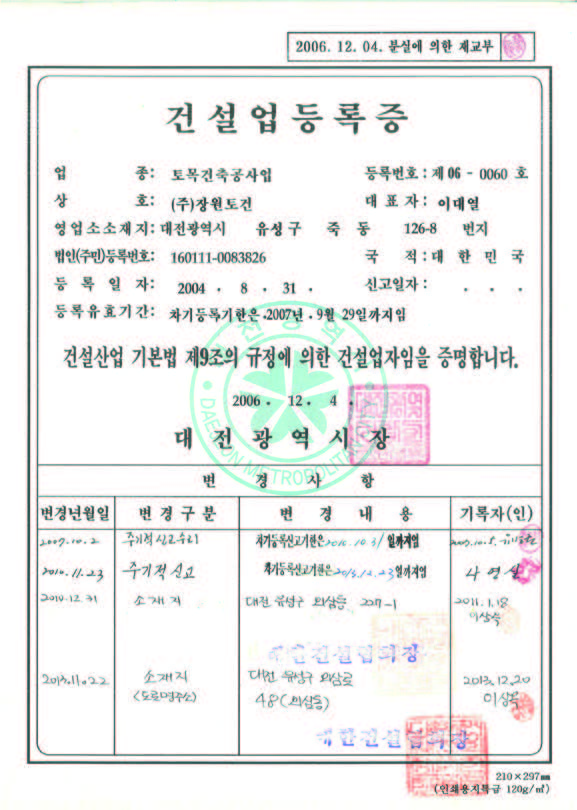 2006. 12. 04. 분실에 의한 재교부
건설업등록증
업 종: 토목건축공사업 등록번호: 제 06 - 0060 호
상 호: (주)장원토건 대 표 자: 이대열
영업소소재지: 대전광역시 유성구 죽 동 126-8 번지
법인(주민)등록번호: 160111-0083826 국 적: 대 한 민 국
등 록 일 자: 2004 . 8 . 31 . 신고일자: . . .
등록유효기간: 차기등록기한은 . 2007년 . 9월 29일까지임
건설산업 기본법 제9조의 규정에 의한 건설업자임을 증명합니다.
2006 . 12 . 4 .
대 전 광 역 시 장
변 경 사 항
변경년월일 변경구분 변 경 내 용 기록자(인)
2007.10.2 주기적신고수리 차기등록신고기한은 2010.10.31 일까지임 2007.10.8.
2010.11.23 주기적신고 차기등록신고기한은 2013.12.23 일까지임 나영실
2010.12.31 소재지 대전 유성구 외삼동 207-1 2011.1.18
이상욱
대한건설협회장
2013.11.22 소재지 대전 유성구 외삼로 2013.12.20
(도로명주소) 48 (외삼동)
대한건설협회장
210×297㎜
(인쇄용지특급 120g/㎡)